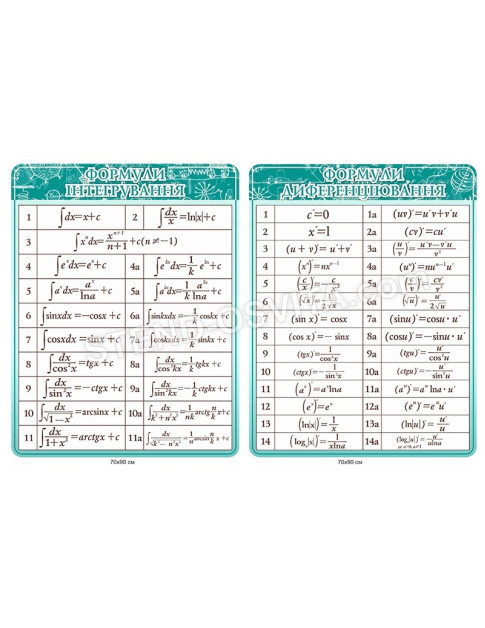 ФОРМУЛИ
ІНТЕГРУВАННЯ
1 ∫dx=x+c 2 ∫dx/x=ln|x|+c
3 ∫xⁿdx=xⁿ⁺¹/n+1 +c(n ≠-1)
4 ∫eˣdx=eˣ+c 4a ∫eᵏˣdx=1/k eᵏˣ+c
5 ∫aˣdx=aˣ/lna+c 5a
6 ∫sinxdx =-cosx +c 6a ∫sinkxdx =-1/k coskx +c
7 ∫cosxdx= sinx +c 7a ∫coskxdx=1/k sinkx +c
8 ∫dx/cos²x=tgx +c 8a ∫dx/cos²kx=1/k tgkx +c
9 ∫dx/sin²x=-ctgx +c 9a ∫dx/sin²kx=-1/k ctgkx +c
10 ∫dx/√1-x²=arcsinx +c 10a
11 ∫dx/1+x²=arctgx +c 11a
70x90 см
ФОРМУЛИ
ДИФЕРЕНЦІЮВАННЯ
1 c´=0 1a (uv)´=u´v+v´u
2 x´=1 2a (cv)´=cu´
3 (u + v)´= u´+v´ 3a (u/v)´=u´v-v´u/v²
4 (xⁿ)´= nxⁿ⁻¹ 4a (uⁿ)´=nuⁿ⁻¹u´
5 (c/x)´=-c/x² 5a (c/v)´=-cv´/v²
6 (√x)´=1/2√x 6a (√u)´=u´/2√u
7 (sin x)´= cosx 7a (sinu)´=cosu·u´
8 (cos x)´=- sinx 8a (cosu)´=-sinu·u´
9 (tgx)´=1/cos²x 9a (tgu)´=u´/cos²u
10 (ctgx)´=-1/sin²x 10a (ctgu)´=-u´/sin²u
11 (aˣ)´=aˣlna 11a (aᵘ)´=aᵘ lna·u´
12 (eˣ)´=eˣ 12a (eᵘ)´=eᵘu´
13 (ln|x|)´=1/x 13a (ln|u|)´=u´/u
14 14a
70x90 см
STEND-OSVITA.com